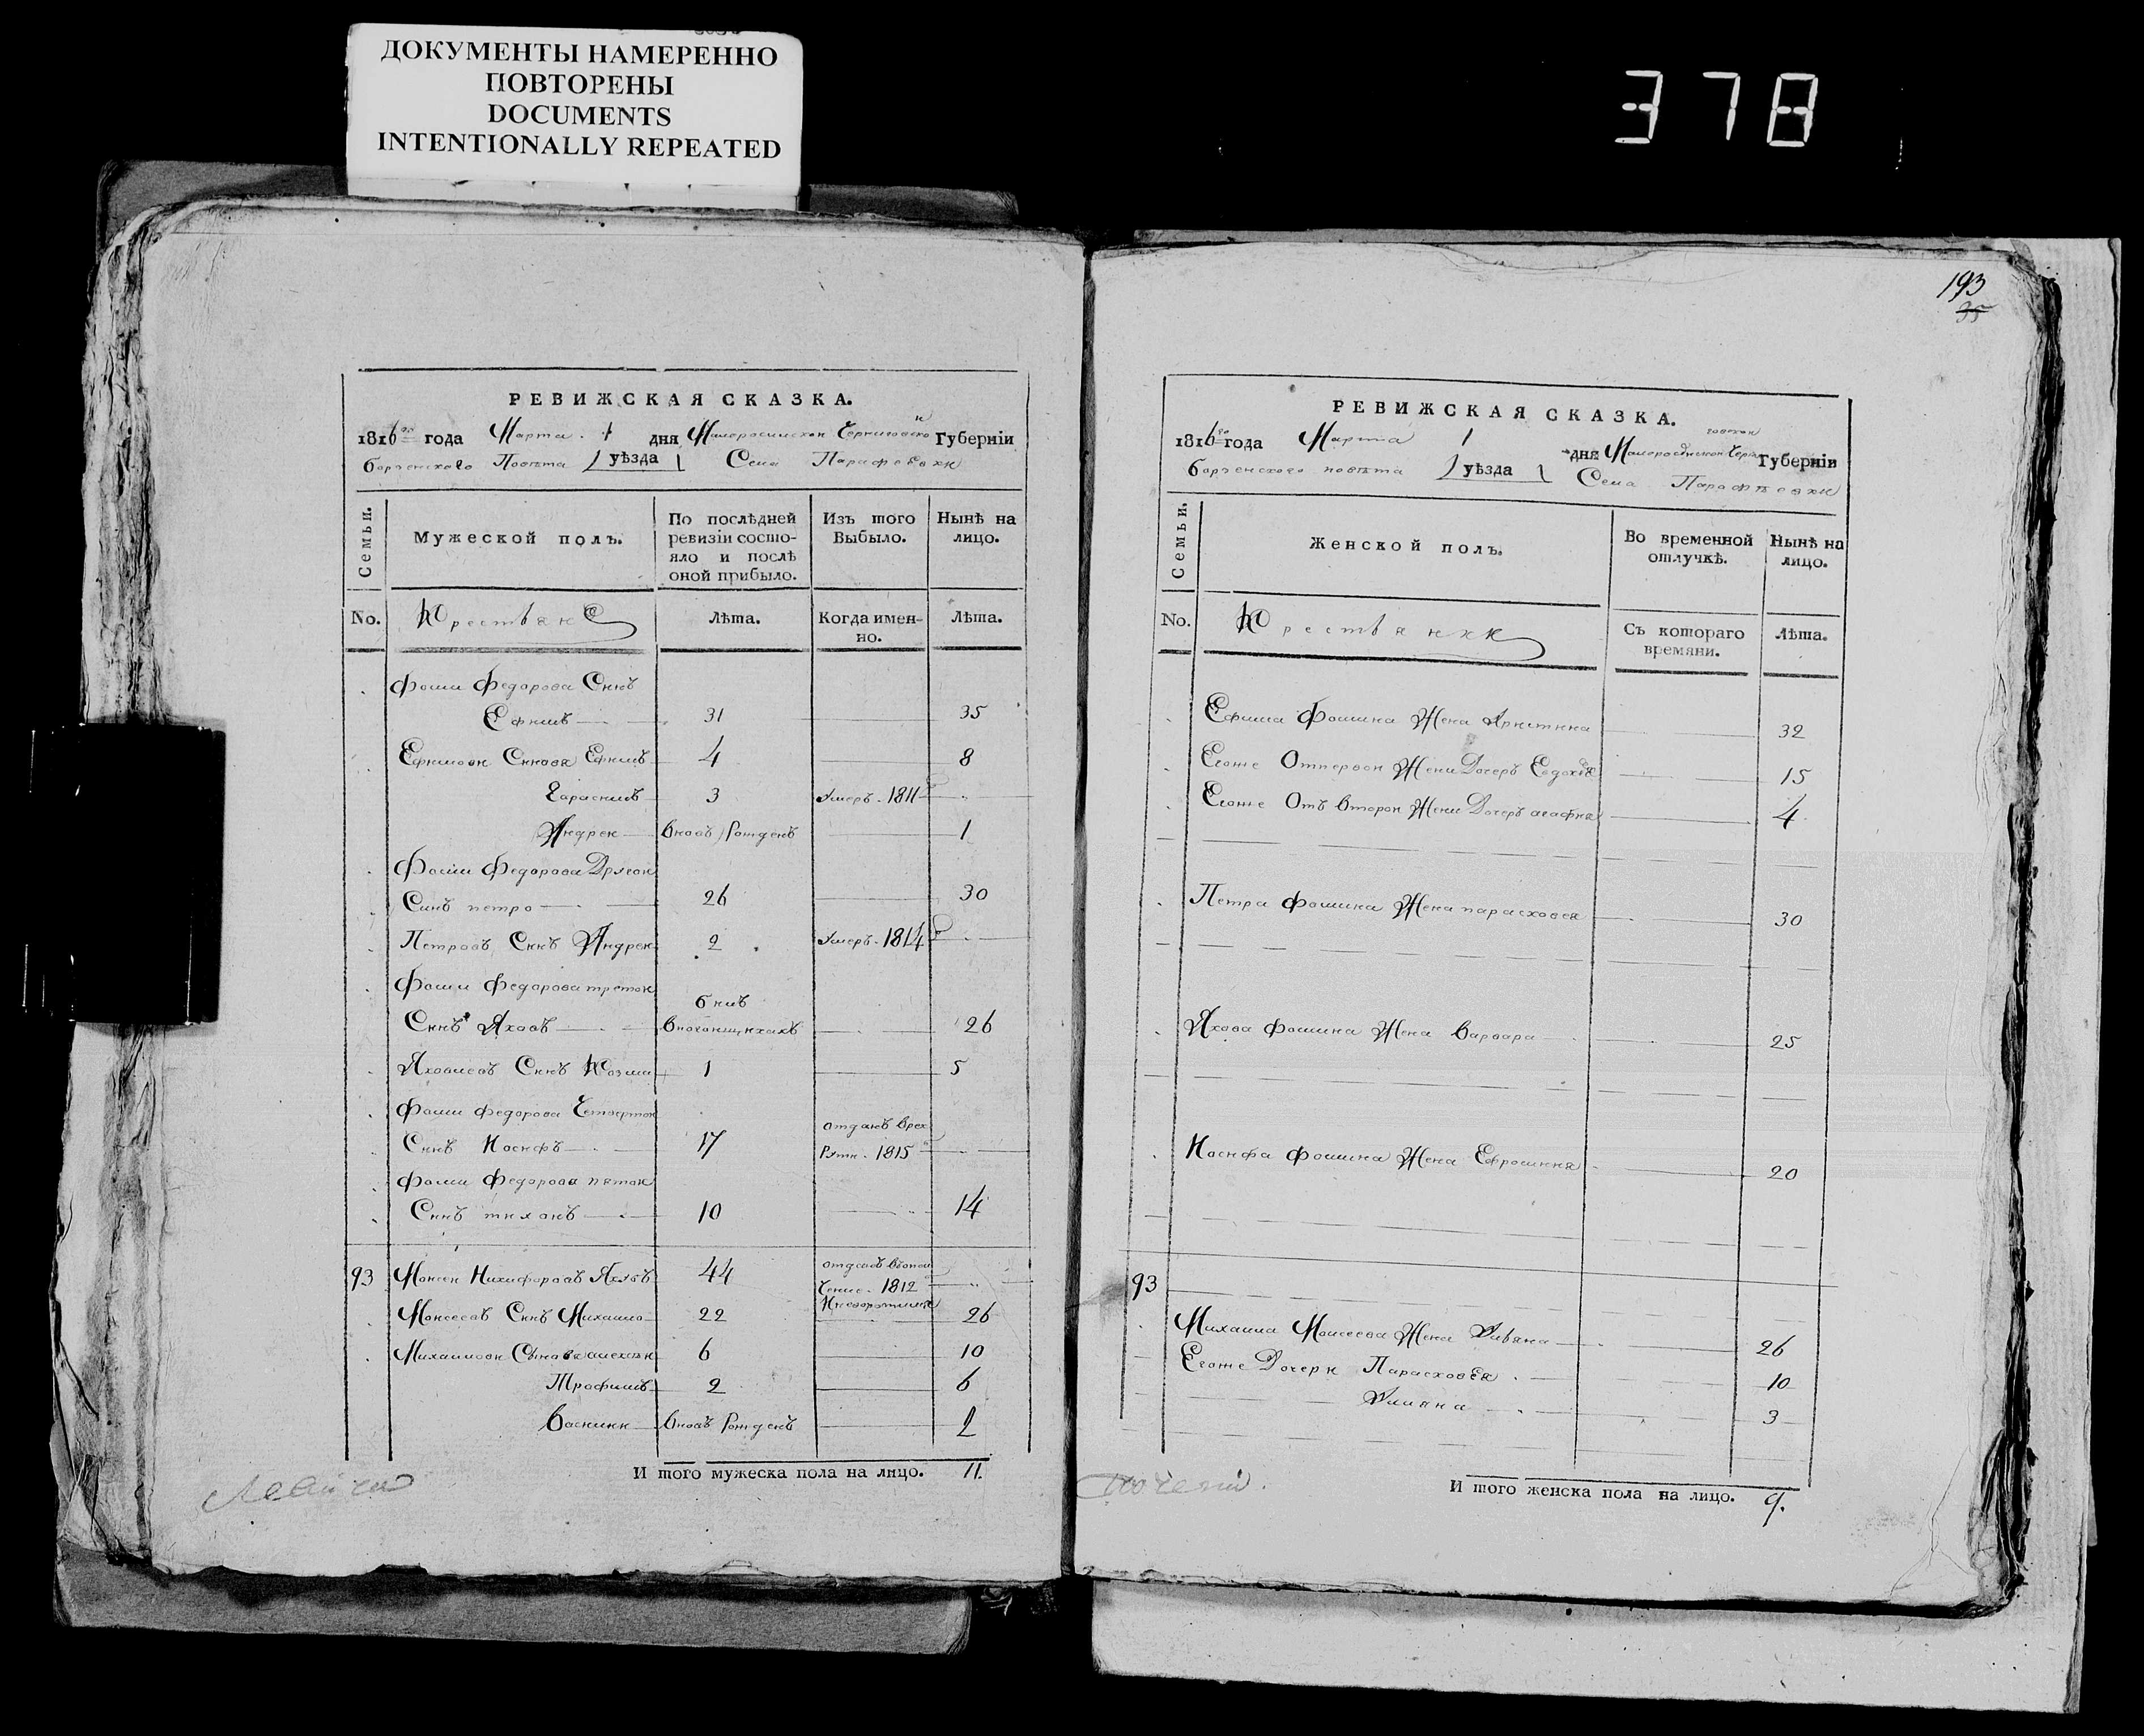 ДОКУМЕНТЫ НАМЕРЕННО
ПОВТОРЕНЫ
DOCUMENTS
INTENTIONALLY REPEATED
378
РЕВИЖСКАЯ СКАЗКА.
1816го года Марта 1 дня Малоросийской Черниговской Губерніи
борзенского Повѣта уѣзда Села Парафѣевки
Семьи.
Мужеской полъ.
По послѣдней ревизіи состояло и послѣ оной прибыло.
Изъ того Выбыло.
Нынѣ на лицо.
No.
Крестьяне
Лѣта.
Когда именно.
Лѣта.
Фоми Федорова Синъ
Ефимъ 31 35
Ефимови Синовя Ефимъ 4 8
Гарасимъ 3 Умеръ 1811 го
Андрей вновь рожденъ 1
Фоми Федорова Другой
Синъ петро 26 30
Петровъ Синъ Андрей 2 Умеръ 1814 го
Фоми Федорова третой билъ
Синъ Яковъ 26
Яковлевъ Синъ Козма 1 5
Фоми Федорова Четвертой отданъ врек
Синъ Иосифъ 17 руты 1815
Фоми Федорова пятой
Синъ тиханъ 10 14
93 Моисей Никифоровъ 44 1812
Моисеевъ Синъ Михайло 22 26
Михайлови Сынова алексѣй 6 10
Трофимъ 2 6
Василий вновь рожденъ 2
И того мужеска пола на лицо. 11.
193
35
РЕВИЖСКАЯ СКАЗКА.
1816го года Марта 1 дня Малоросийской Черниговской Губерніи
борзенского повѣта уѣзда Села Парафѣевки
Семьи.
Женской полъ.
Во временной отлучкѣ.
Нынѣ на лицо.
No.
Крестьянки
Съ котораго времяни.
Лѣта.
Ефима Фомина Жена 32
Егоже Отпервой Жени Дочеръ Евдокія 15
Егоже Отъ второй Жени Дочеръ агафия 4
Петра Фомина Жена парасковея 30
Якова Фомина Жена Варвара 25
Иосифа Фомина Жена Ефросиния 20
93
Михайла Моисеева Жена Уляна 26
Егоже Дочери Парасковея 10
Уляна 3
И того женска пола на лицо. 9.